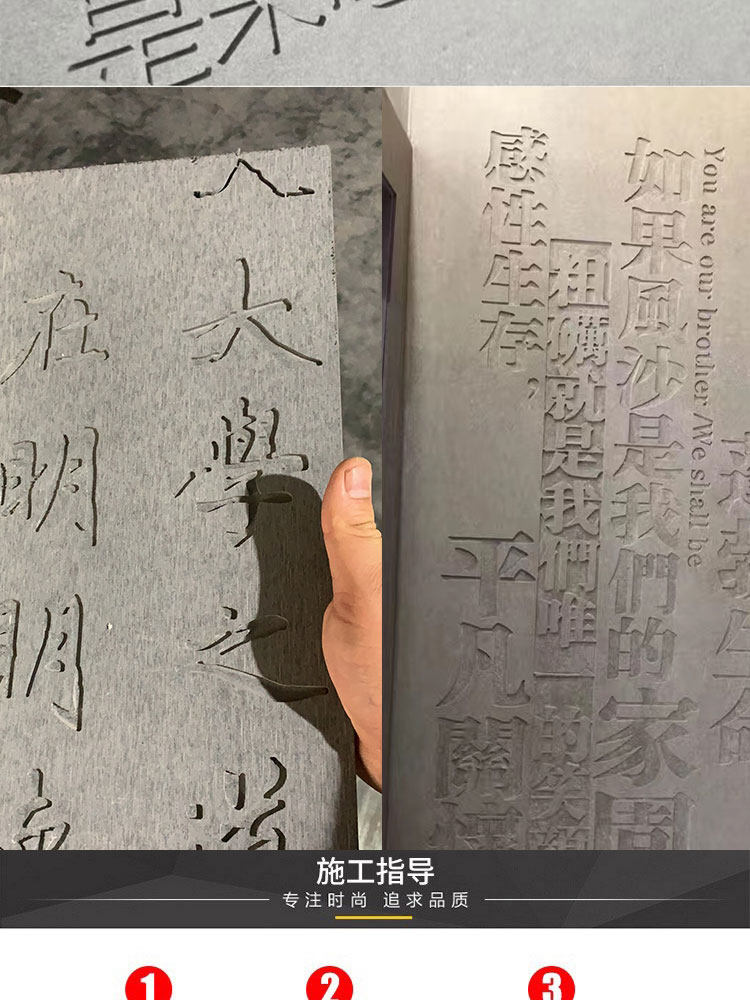 大學之
在明明
生命
You are our brouher We shall be
如果風沙是我們的家
粗礪就是我們唯一的笑
感性生存，
平凡關
施工指导
专注时尚 追求品质
1 2 3